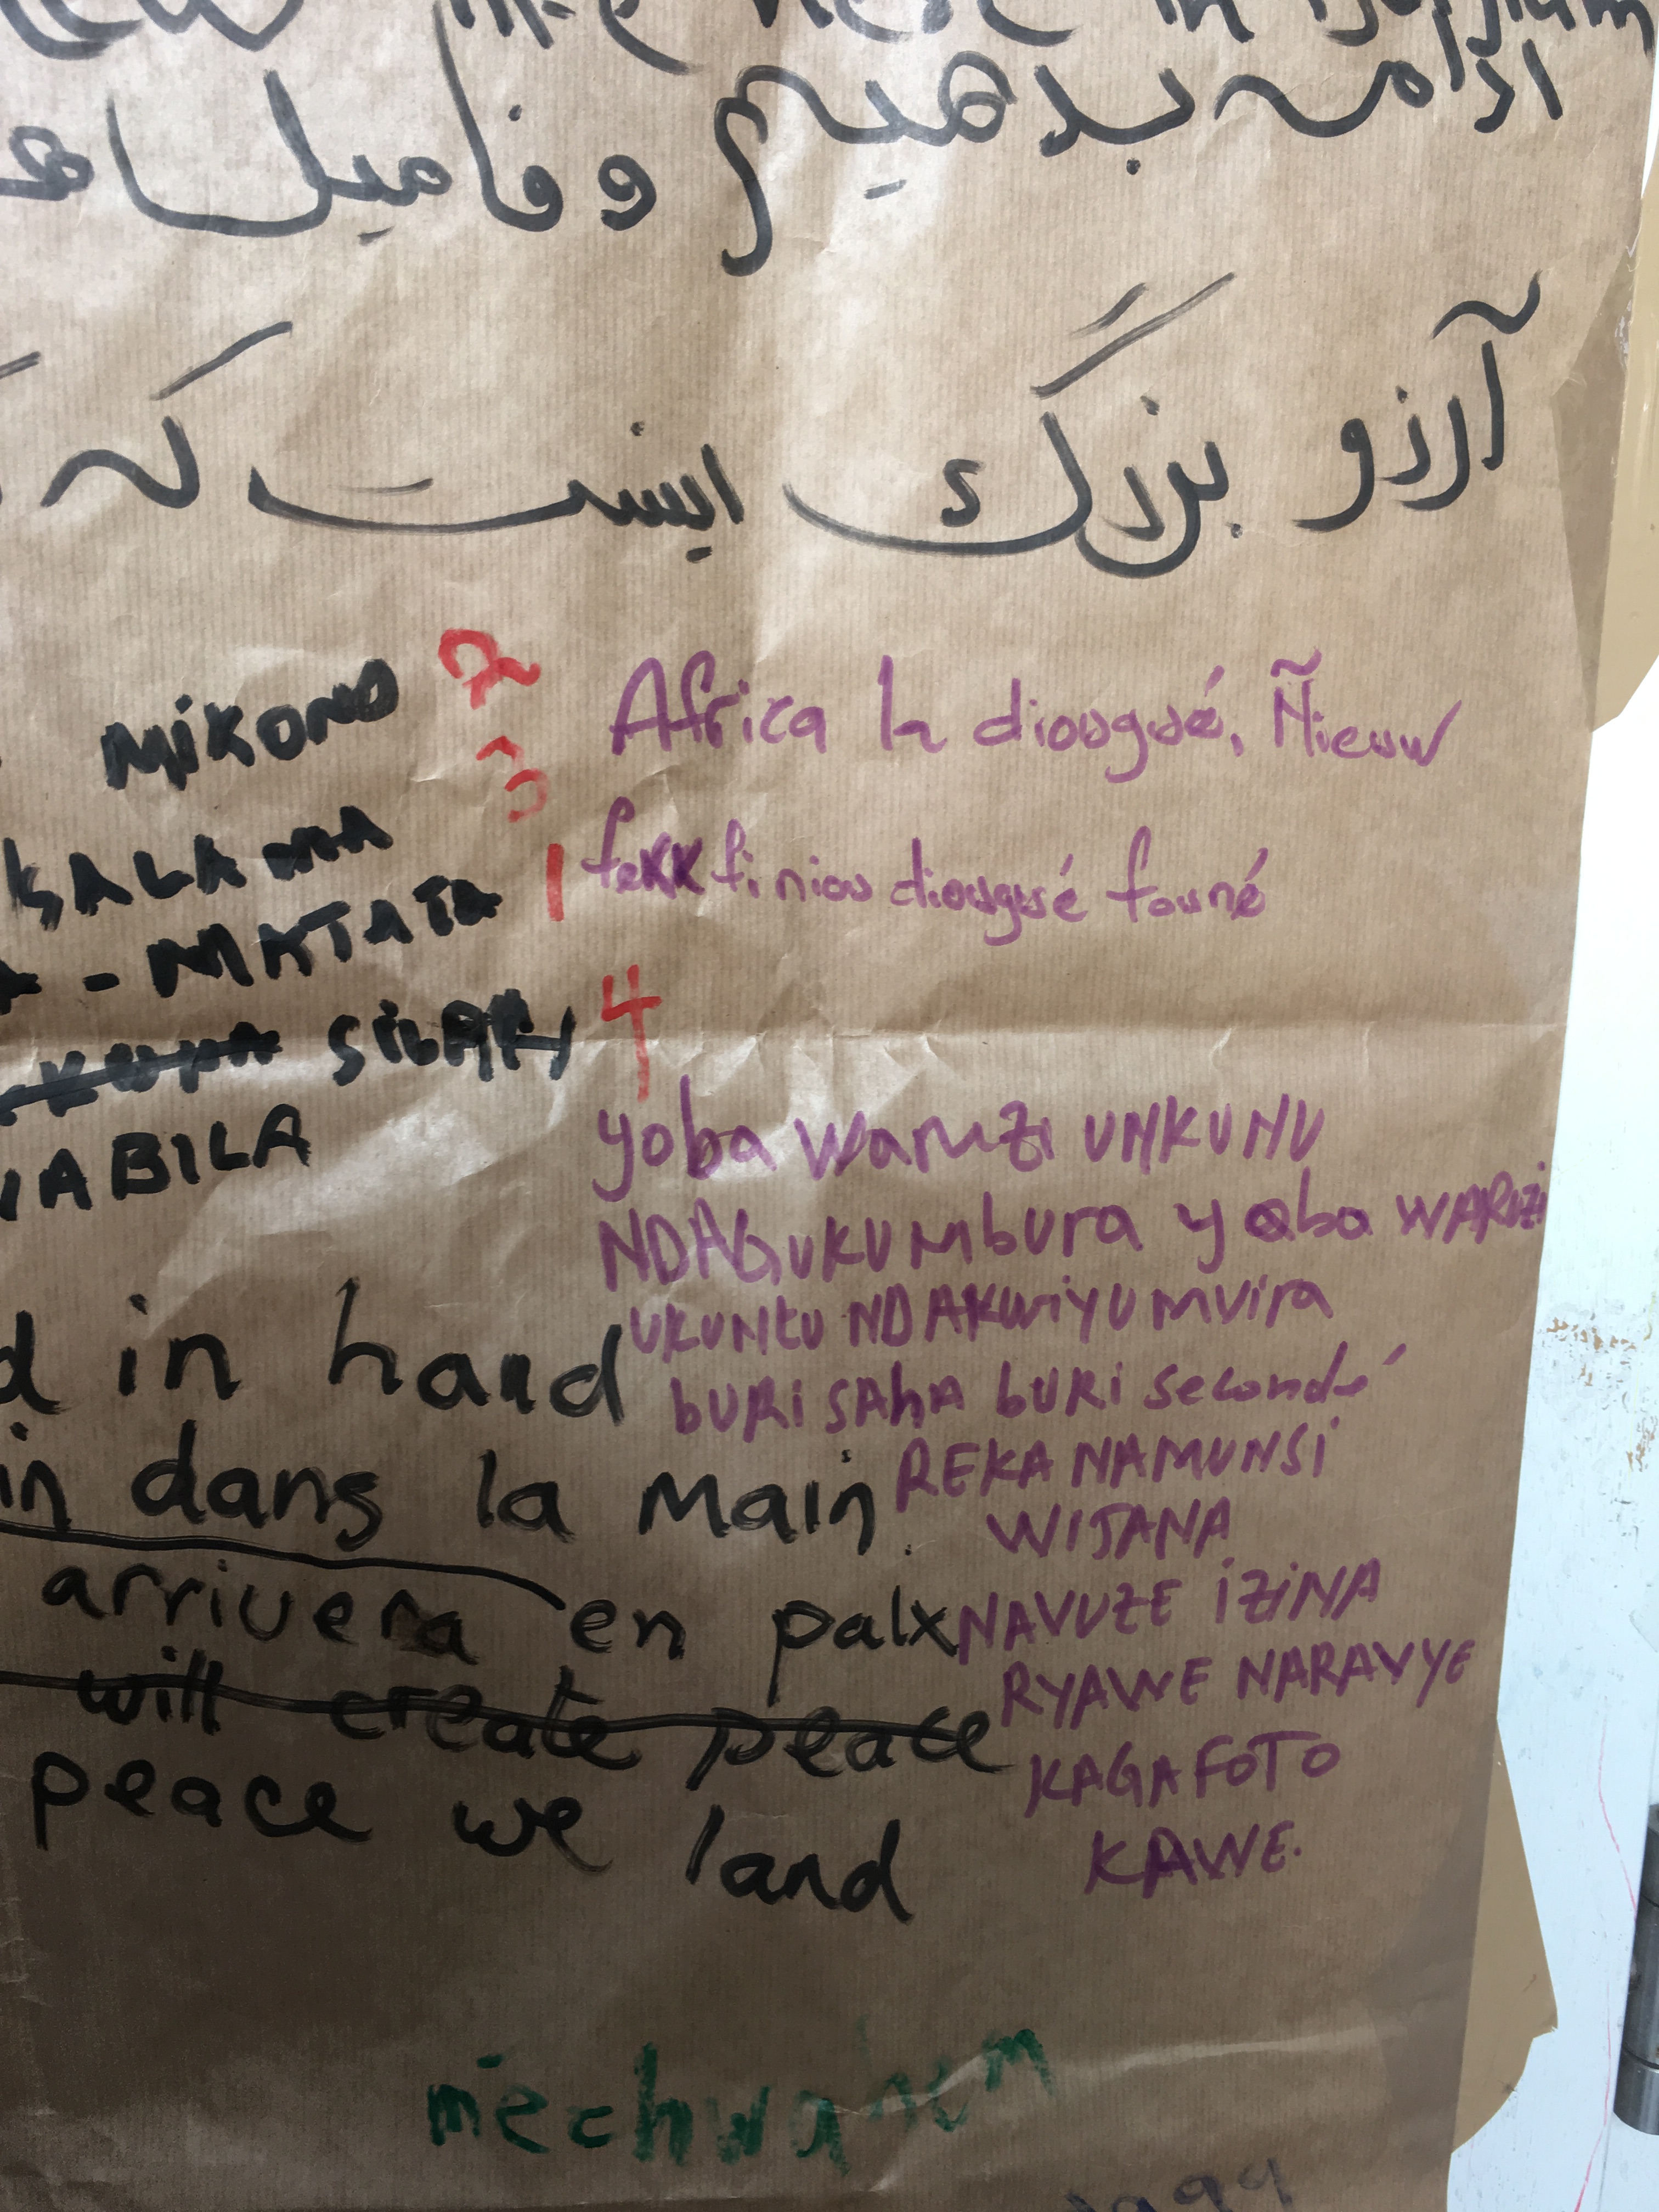 here in
ادامه بدهیم و فامیل
آرزو بزرگ اینست که
MiKONO 2
3
KALAMA
- MKTATA 1
SiLAHY 4
ABILA
Africa la diougué, Ñieuw
fekk fi niou diougué founé
yoba waruzi UNKUNU
NDAGUKUMbura yoba WARUZi
UKUNtU NDAKWiYUMVira
bURi SAhA bURi secondé
REKA NAMUNSi
WIJANA
NAVUZE iZiNA
RYAWE NARAVYE
KAGAFOTO
KAWE.
in hand
dans la Main
arrivera en paix
will create peace
peace we land